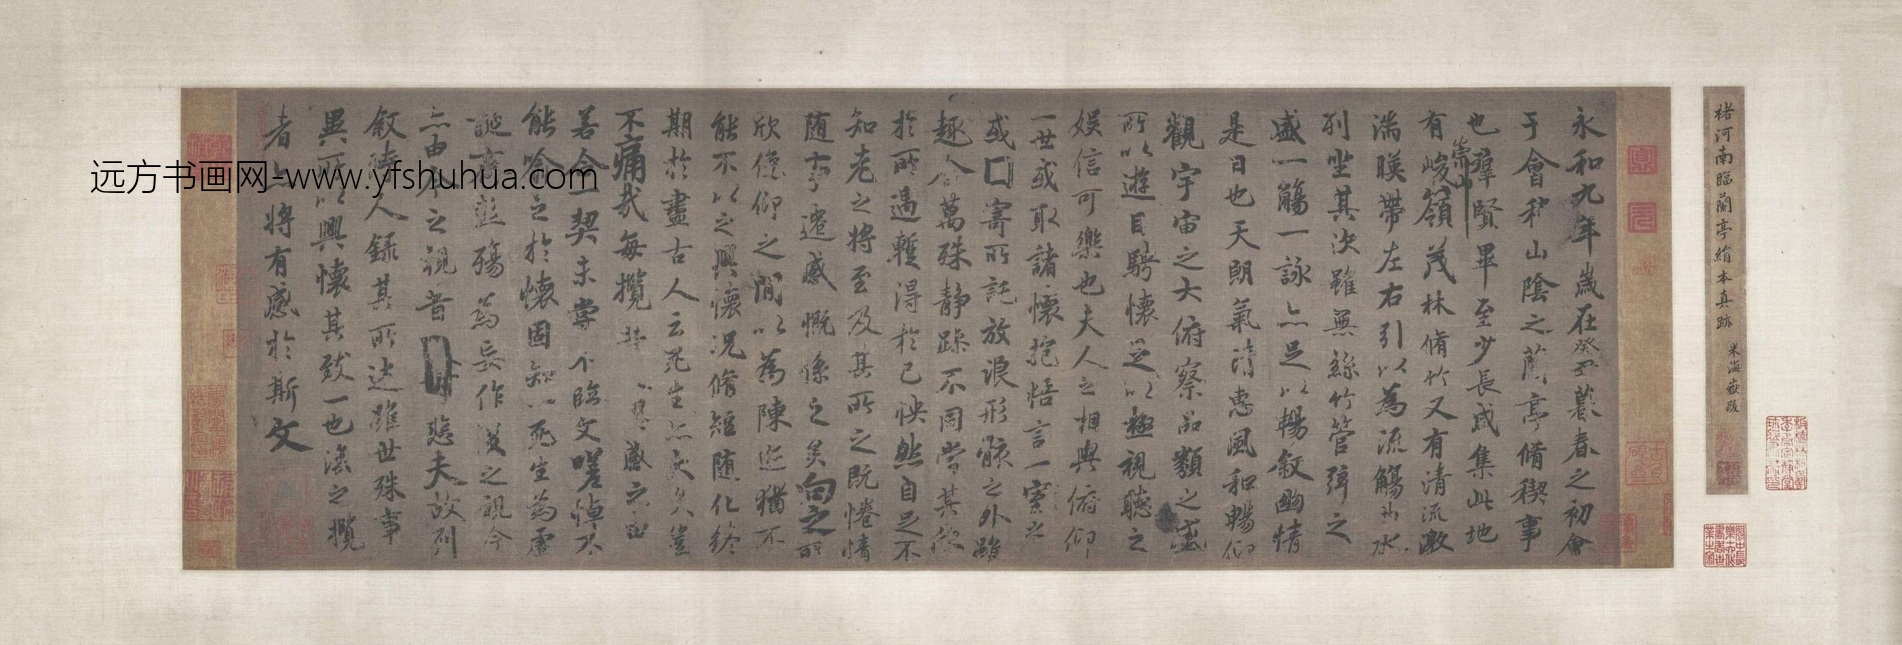 褚河南臨蘭亭絹本真跡
米海嶽跋
永和九年歲在癸丑暮春之初會
于會稽山陰之蘭亭脩禊事
也羣賢畢至少長咸集此地
有崇山峻領茂林脩竹又有清流激
湍暎帶左右引以為流觴曲水
列坐其次雖無絲竹管弦之
盛一觴一詠亦足以暢敘幽情
是日也天朗氣清惠風和暢仰
觀宇宙之大俯察品類之盛
所以遊目騁懷足以極視聽之
娛信可樂也夫人之相與俯仰
一世或取諸懷抱悟言一室之
或寄所託放浪形骸之外雖
趣舍萬殊靜躁不同當其欣
於所遇暫得於己怏然自足不
知老之將至及其所之既惓情
隨事遷感慨係之矣向之所
欣俛仰之間以為陳迹猶不
能不以之興懷況脩短隨化終
期於盡古人云死生亦大矣豈
不痛哉每攬昔人興感之由
若合一契未嘗不臨文嗟悼不
能喻之於懷固知一死生為虛
誕齊彭殤為妄作後之視今
亦由今之視昔悲夫故列
敘時人錄其所述雖世殊事
異所以興懷其致一也後之攬
者亦將有感於斯文
远方书画网-www.yfshuhua.com